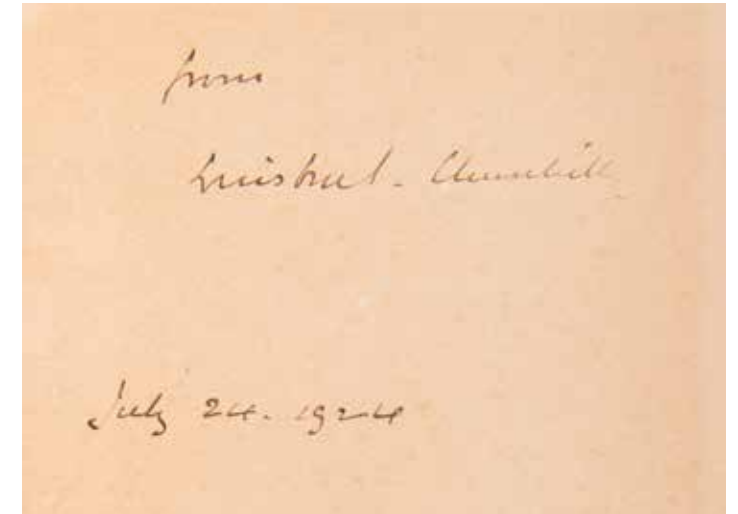 from
Winston S. Churchill
July 24. 1924